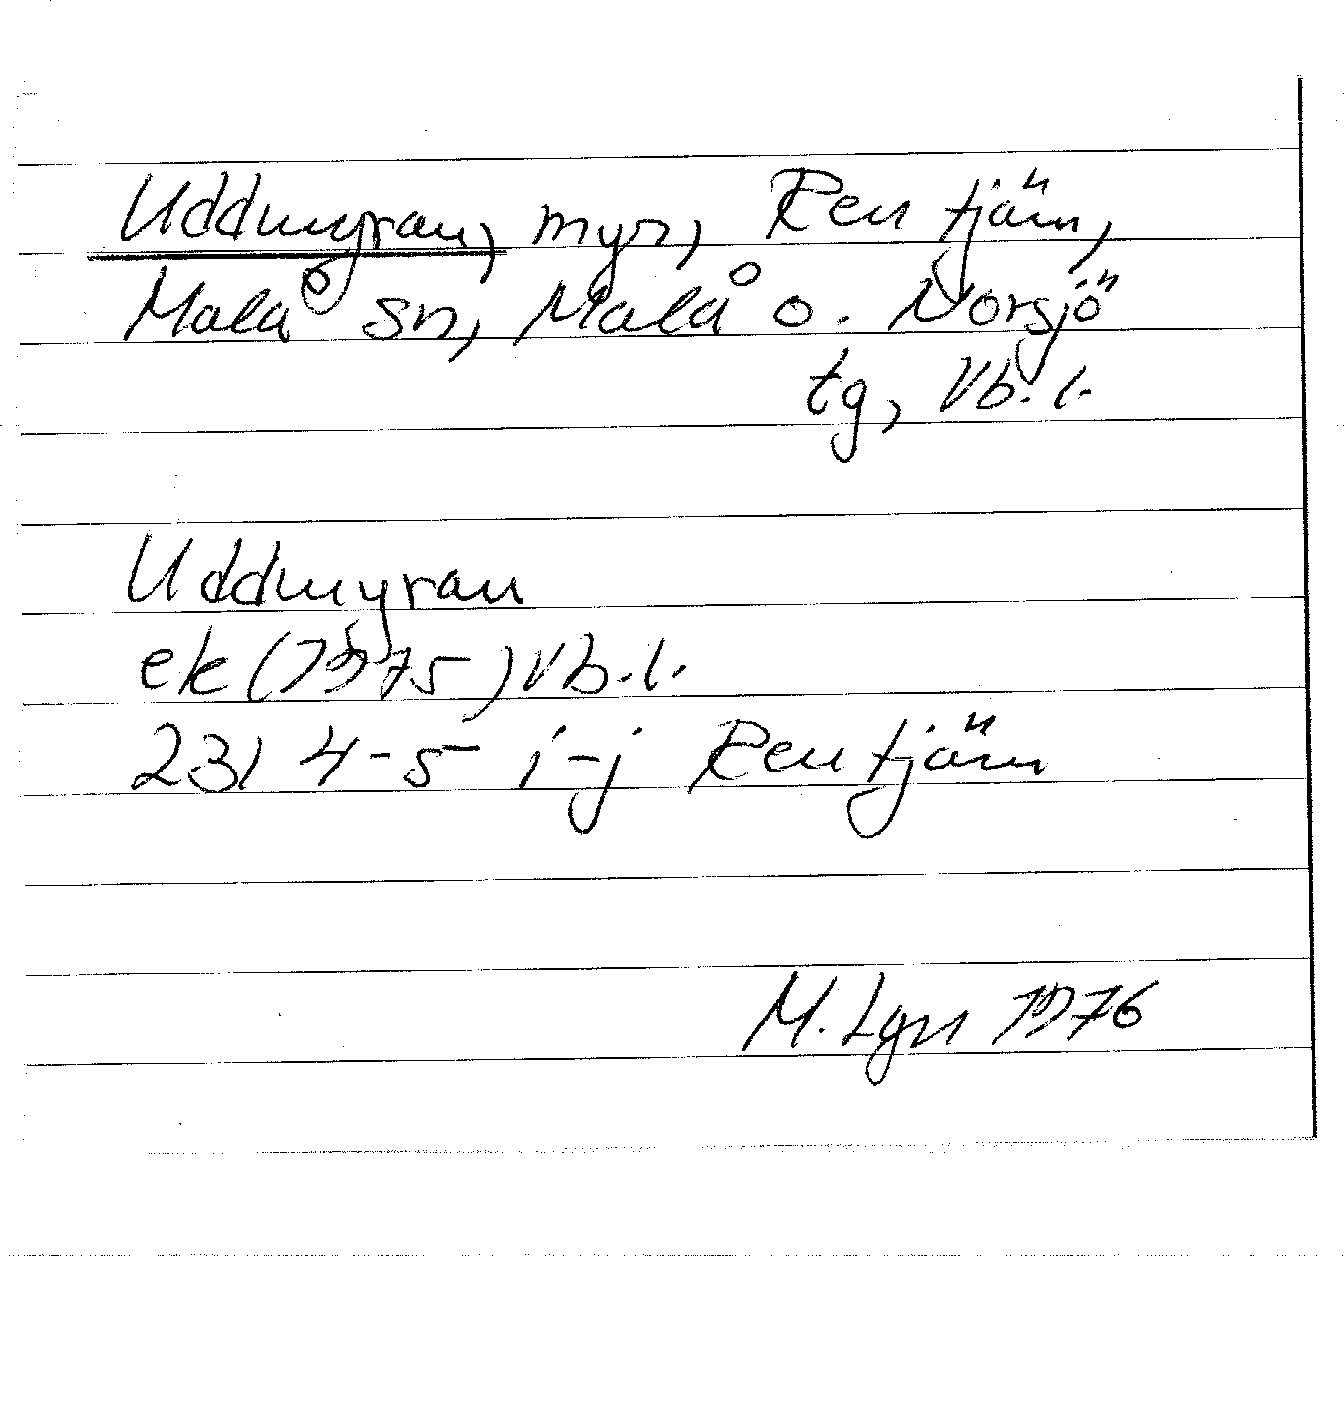 Uddmyran, myr, Rentjärn,
Malå sn, Malå o. Norsjö
tg, Vb. l.
Uddmyran
ek (1975) Vb. l.
23I 4-5 i-j Rentjärn
M. Lgn 1976